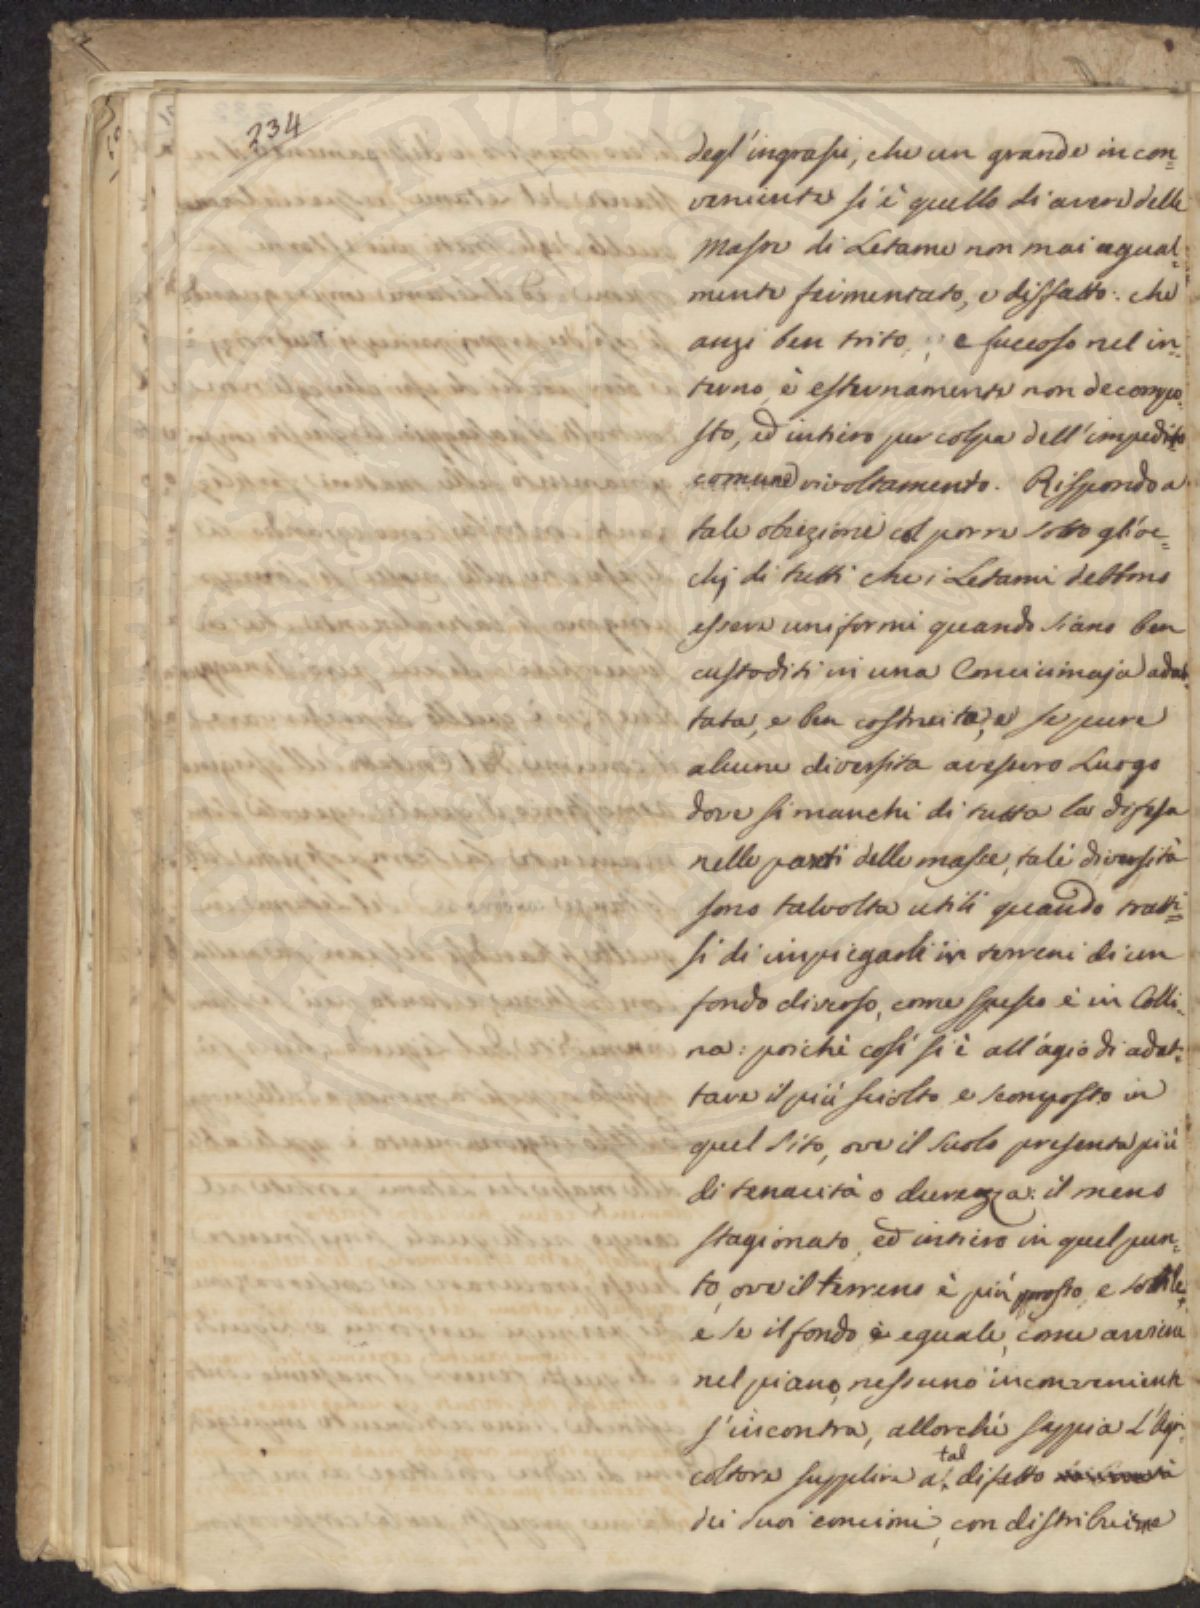 234
degl'ingrassi, che un grande incon=
veniente si è quello di avere delle
Masse di Letame non mai egual=
mente fermentato, e disfatto: che
anzi ben trito, e succoso nel in=
terno, è esternamente non decompo=
sto, ed intiero per colpa dell'impedito
comune rivoltamento. Rispondo a
tale obiezione col porre sotto gl'oc=
chj di tutti che i Letami debbono
essere uniformi quando siano ben
custoditi in una Concimaja adat=
tata, e ben costruita, e se pure
alcune diversità avessero Luogo
dove si manchi di tutta la difesa
nelle parti delle masse, tali diversità
sono talvolta utili quando tratti=
si di impiegarli in terreni di un
fondo diverso, come spesso è in Colli=
na: poichè così si è all'agio di adat=
tare il più sciolto e scomposto in
quel sito, ove il suolo presenta più
di tenacità o durezza: il meno
stagionato, ed intiero in quel pun=
to, ove il terreno è più e sottile
e se il fondo è eguale, come avviene
nel piano, nessuno inconveniente
s'incontra, allorchè sappia L'Agri=
coltore supplire a tal difetto
dei suoi concimi, con distribuirne